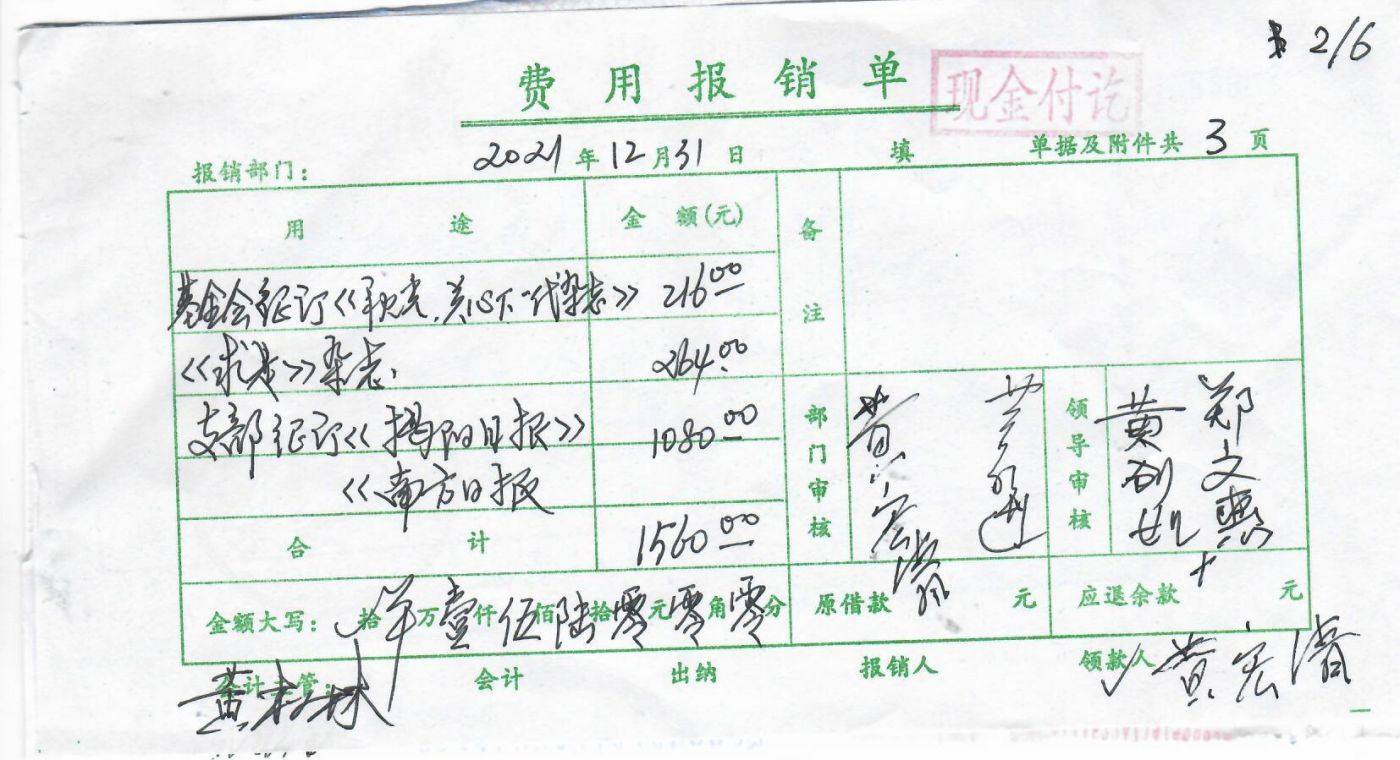 2/6
费用报销单
现金付讫
报销部门：
2021年12月31日 填 单据及附件共3页
用途 金额(元) 备注
基金会征订《秋光.关心下一代杂志》 216.00
《求是》杂志. 264.00
支部征订《揭阳日报》 1080.00
《南方日报
合计 1560.00
部门审核 黄宏
领导审核 郑文 黄
金额大写： 拾 万壹仟伍佰陆拾零元零角零分 原借款 元 应退余款 元
会计主管： 会计 出纳 报销人 领款人 黄宏